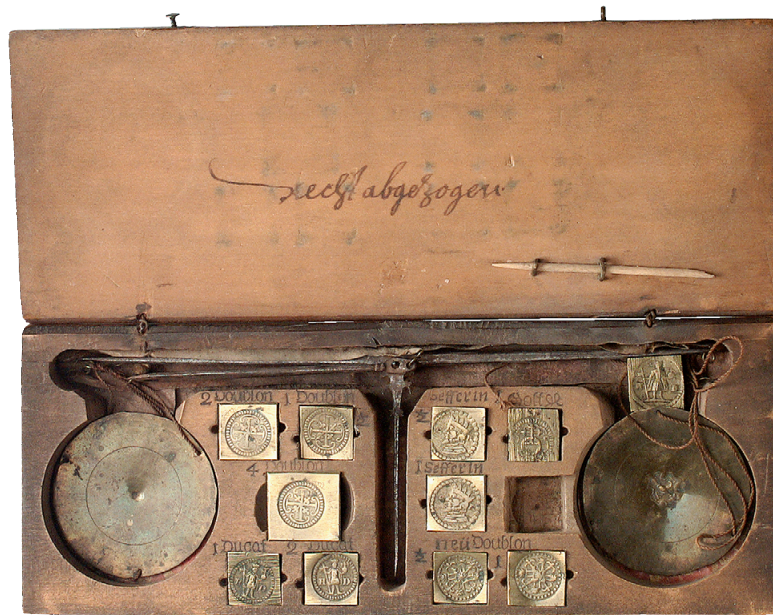 recht abgezogen
2 Doublon 1 Doublon
4 Doublon
1 Ducat 2 Ducat
Sefferin
1 Sefferin
Neü Doublon
1